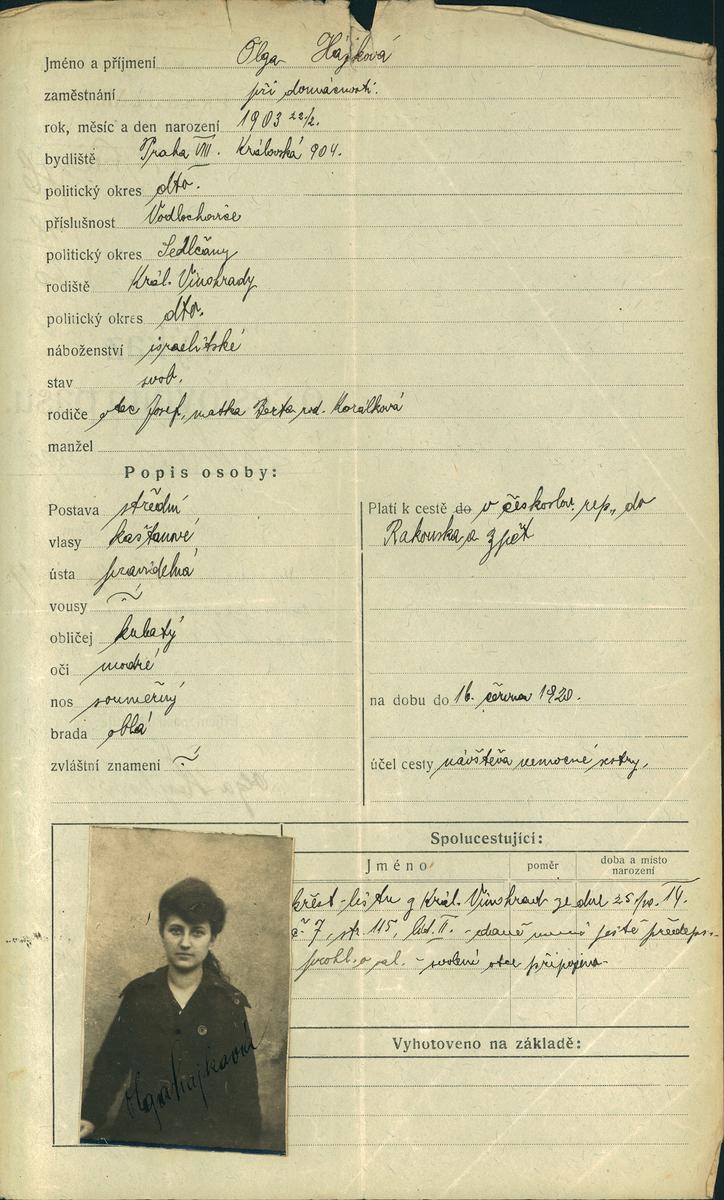 Jméno a příjmení Olga Hájková
zaměstnání při domácnosti.
rok, měsíc a den narození 1903 22/2.
bydliště Praha VIII. Královská 904.
politický okres dtto.
příslušnost Vodlochovice
politický okres Sedlčany
rodiště Král. Vinohrady
politický okres dtto.
náboženství israelitské
stav svob.
rodiče otec Josef, matka Berta roz. Korálková
manžel
Popis osoby:
Postava střední
vlasy kaštanové
ústa pravidelná
vousy
obličej kulatý
oči modré
nos souměrný
brada oblá
zvláštní znamení
Platí k cestě do v českoslov. rep., do
Rakouska a zpět
na dobu do 16. června 1920.
účel cesty návštěva nemocné sestry.
Spolucestující:
Jméno poměr doba a místo narození
křest. listu z Král. Vinohrad ze dne
č 7, str. 115, - daně nemá ještě předeps.
prohl. - svolení otce připojeno
Vyhotoveno na základě:
Olga Hájková